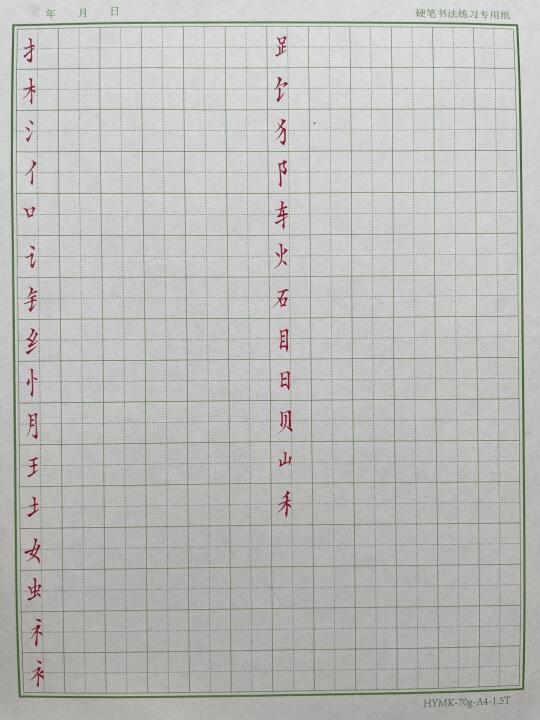 年 月 日 硬笔书法练习专用纸
扌 𧾷
木 饣
氵 犭
亻 阝
口 车
讠 火
钅 石
纟 目
忄 日
月 贝
王 山
土 禾
女
虫
礻
衤
HYMK-70g-A4-1.5T